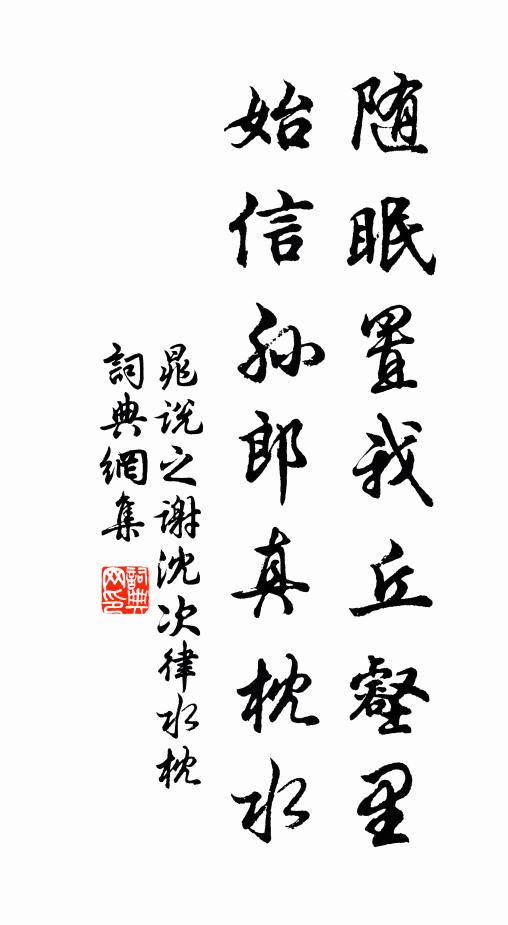 随眠置我丘壑里
始信孙郎真枕水
晁说之谢沈次律水枕
詞典網集
詞典網印